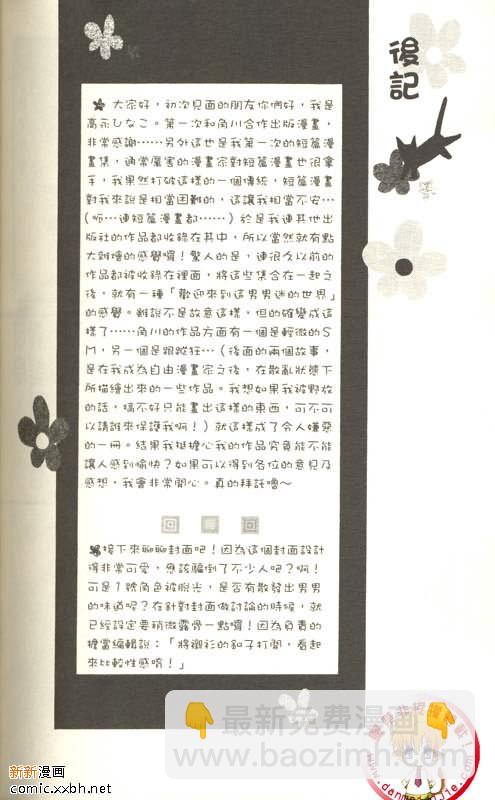 後記
大家好，初次見面的朋友你們好，我是
高永ひなこ。第一次和角川合作出版漫畫，
非常感謝……另外這也是我第一次的短篇漫
畫集，通常厲害的漫畫家對短篇漫畫也很拿
手，我果然打破這樣的一個傳統，短篇漫畫
對我來說是相當困難的，這讓我相當不安…
(呃…連短篇漫畫都……)於是我連其他出
版社的作品都收錄在其中，所以當然就有點
大雜燴的感覺囉！驚人的是，連很久以前的
作品都被收錄在裡面，將這些集合在一起之
後，就有一種「歡迎來到這男男迷的世界」
的感覺。雖說不是故意這樣，但的確變成這
樣了……角川的作品方面有一個是輕微的S
M，另一個是跟蹤狂…(後面的兩個故事，
是在我成為自由漫畫家之後，在散亂狀態下
所描繪出來的一些作品。我想如果我被野放
的話，搞不好只能畫出這樣的東西，可不可
以請誰來保護我啊！)就這樣成了令人嫌惡
的一冊。結果我挺擔心我的作品究竟能不能
讓人感到愉快？如果可以得到各位的意見及
感想，我會非常開心。真的拜託嚕～
接下來聊聊封面吧！因為這個封面設計
得非常可愛，應該騙倒了不少人吧？啊！
可是1號角色被脫光，是否有散發出男男
的味道呢？在針對封面做討論的時候，就
已經設定要稍微露骨一點囉！因為負責的
擔當編輯說：「將襯衫的釦子打開，看起
來比較性感唷！」
👇最新免费漫画👇
www.baozimh.com
新新漫画
comic.xxbh.net